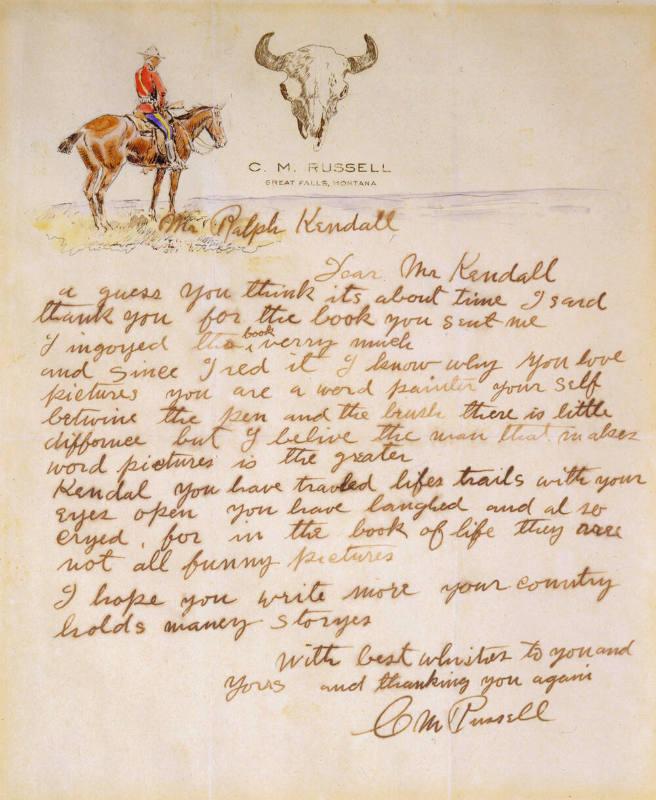 C. M. RUSSELL
GREAT FALLS, MONTANA
Mr Ralph Kendall
Dear Mr Kendall
a guess you think its about time I sard
thank you for the book you sent me
I ingoyed tha book verry much
and since I red it I know why you love
pictures you are a word painter your self
betwine the pen and the brush there is little
differnce but I belive the man that makes
word pictures is the greater
Kendal you have travled lifes trails with your
eyes open you have laughed and al so
cryed, for in the book of life they are
not all funny pictures
I hope you write more your country
holds maney storyes
With best whishes to you and
yours and thanking you again
C M Russell